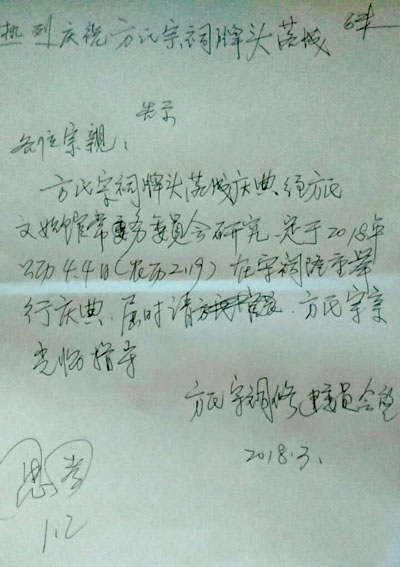 热烈庆祝方氏宗祠牌头落成
告示
各位宗亲：
方氏宗祠牌头落成庆典经方氏
文始馆常务委员会研究定于2018年
公历4.4日(农历2.19)在宗祠隆重举
行庆典、届时请 方氏宗亲
光临指导
方氏宗祠修建委员会
2018.3.
1.2